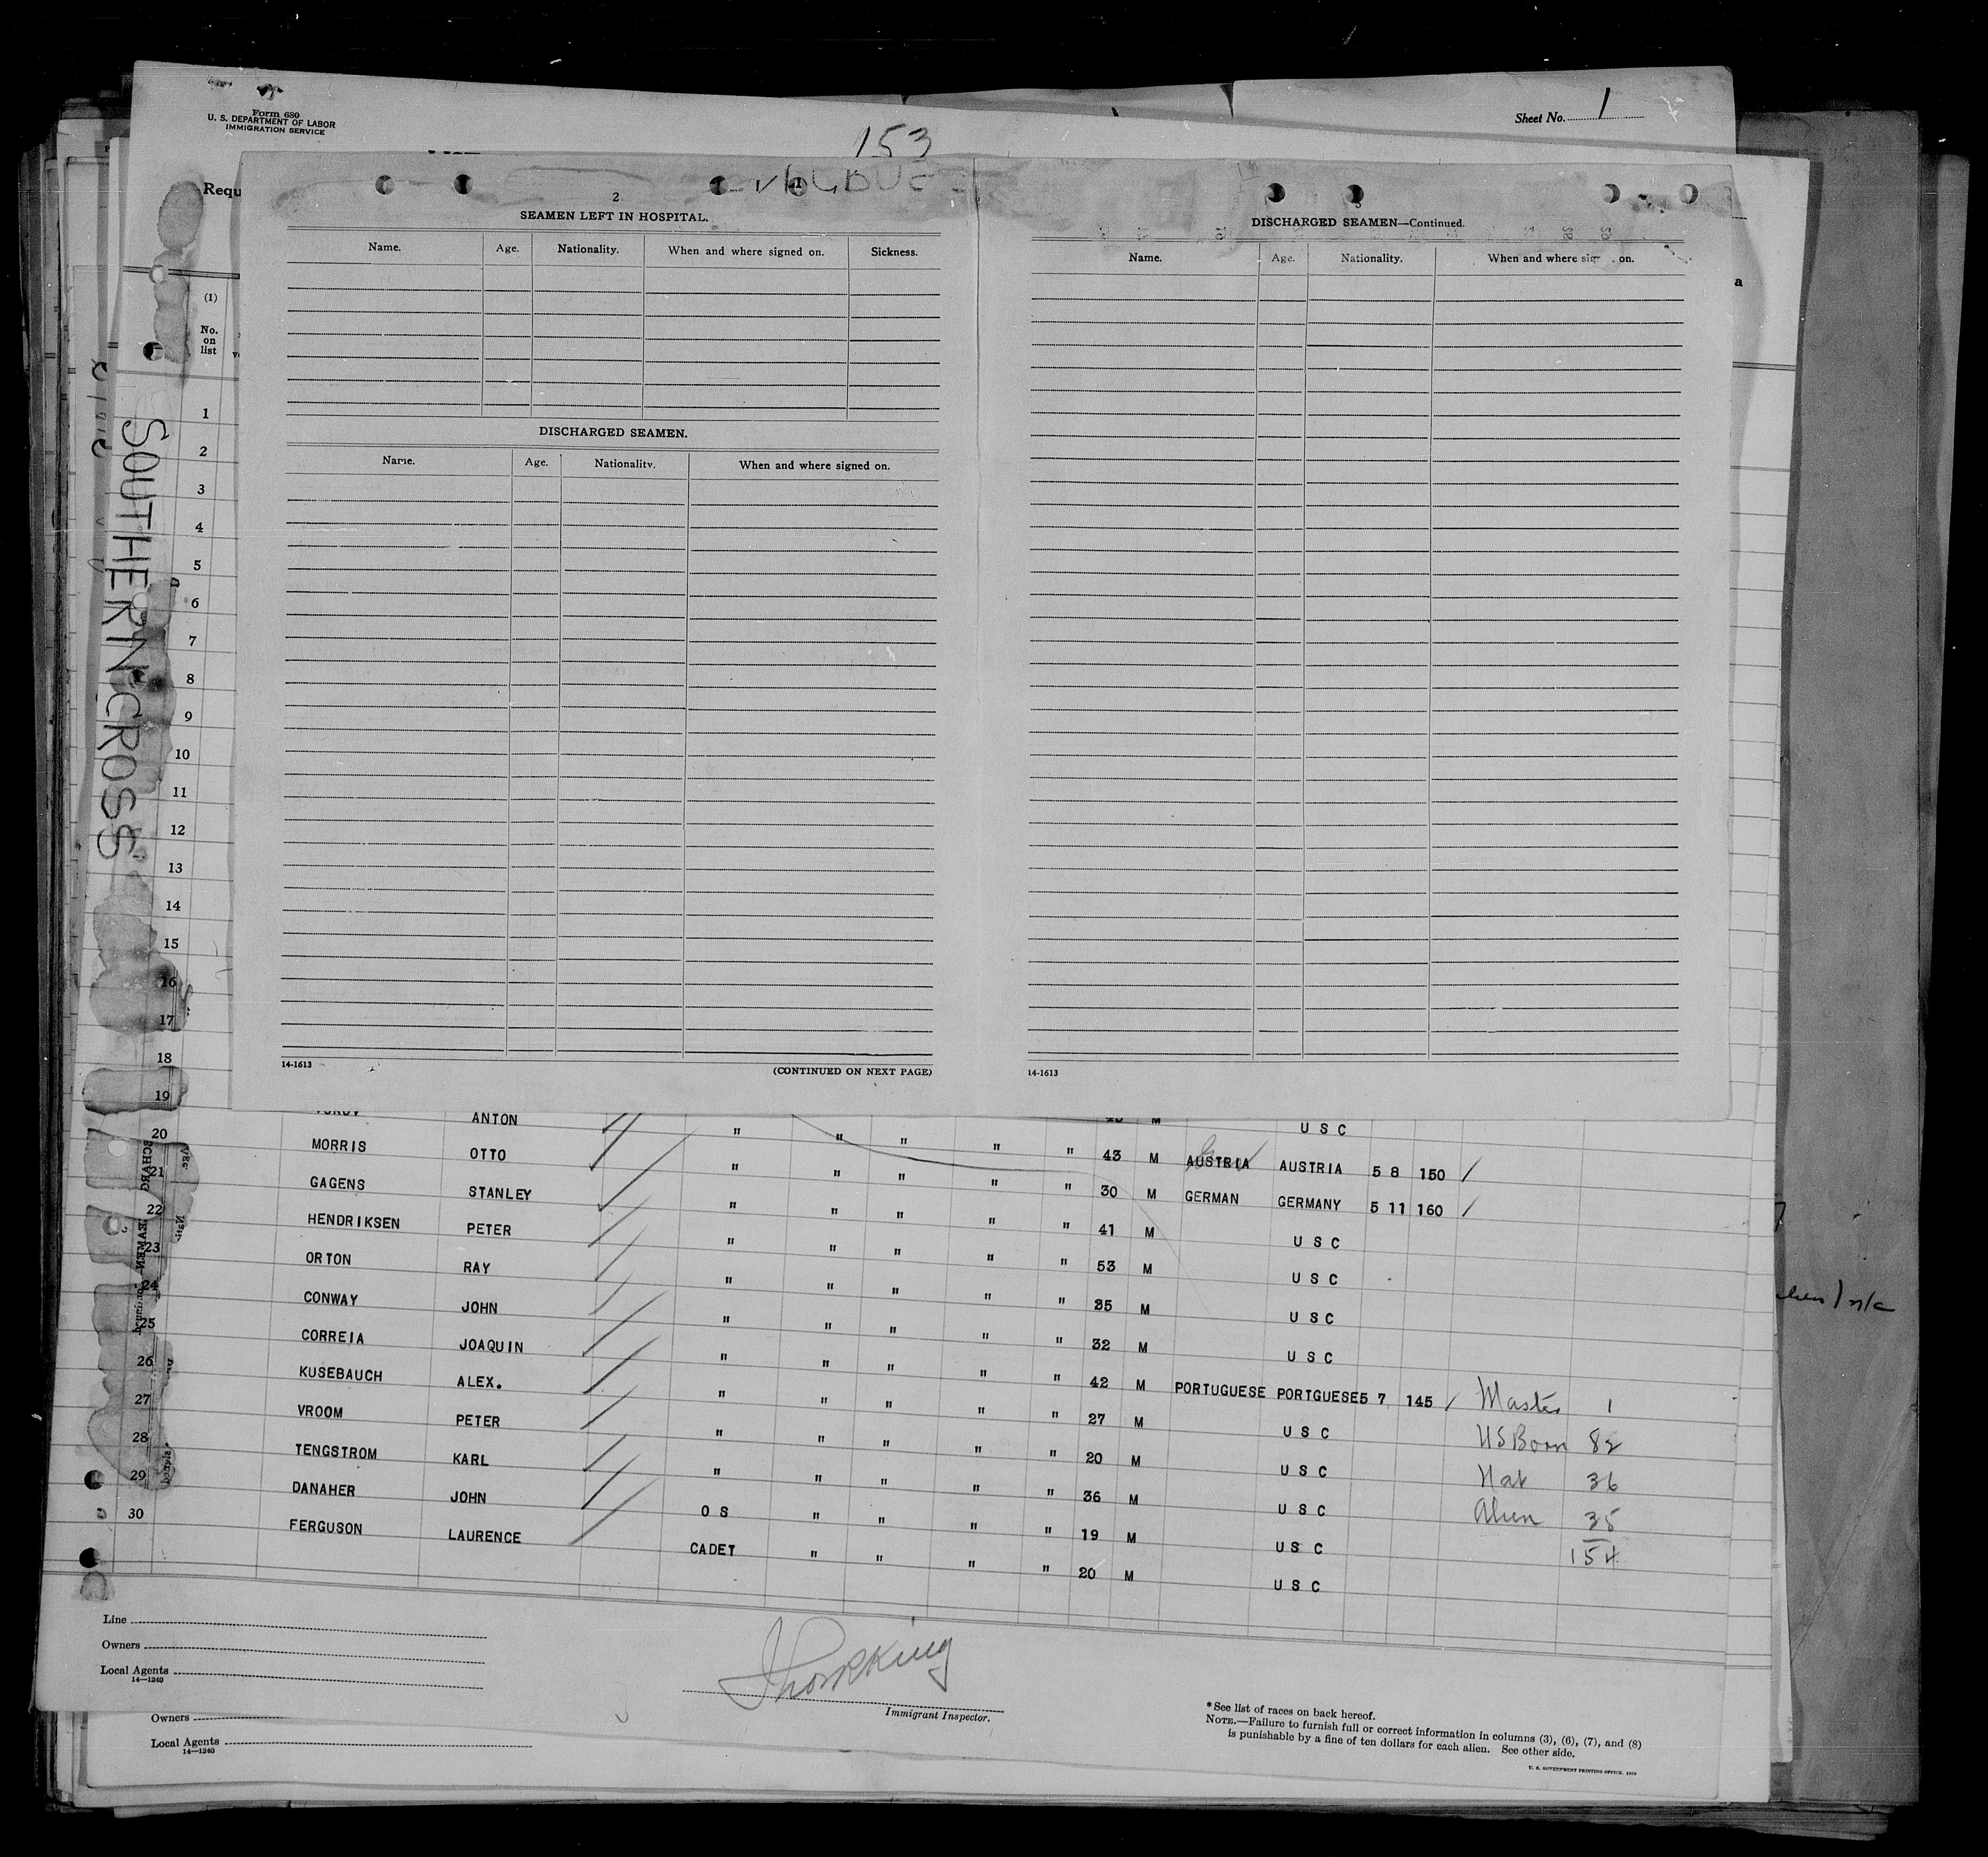 Form 680
U. S. DEPARTMENT OF LABOR
IMMIGRATION SERVICE
Sheet No. 1
153
Requ
SOUTHERN CROSS
(1)
No.
on
list
1
2
3
4
5
6
7
8
9
10
11
12
13
14
15
16
17
18
19
20
21
22
23
24
25
26
27
28
29
30
2
SEAMEN LEFT IN HOSPITAL.
Name. Age. Nationality. When and where signed on. Sickness.
DISCHARGED SEAMEN.
Name. Age. Nationality. When and where signed on.
14-1613
(CONTINUED ON NEXT PAGE)
3
DISCHARGED SEAMEN—Continued.
Name. Age. Nationality. When and where on.
14-1613
ANTON M U S C
MORRIS OTTO " " " " " 43 M AUSTRIA AUSTRIA 5 8 150 /
GAGENS STANLEY " " " " " 30 M GERMAN GERMANY 5 11 160 /
HENDRIKSEN PETER " " " " " 41 M U S C
ORTON RAY " " " " " 53 M U S C
CONWAY JOHN " " " " " 35 M U S C
CORREIA JOAQUIN " " " " " 32 M U S C
KUSEBAUCH ALEX. " " " " " 42 M PORTUGUESE PORTGUESE 5 7 145 / Master 1
VROOM PETER " " " " " 27 M U S C US Born 82
TENGSTROM KARL " " " " " 20 M U S C Nat 36
DANAHER JOHN " " " " " 36 M U S C Alien 35
FERGUSON LAURENCE O S " " " " 19 M U S C 154
CADET " " " " 20 M U S C
Line
Owners
Local Agents
14—1240
Immigrant Inspector.
*See list of races on back hereof.
NOTE.—Failure to furnish full or correct information in columns (3), (6), (7), and (8)
is punishable by a fine of ten dollars for each alien. See other side.
U. S. GOVERNMENT PRINTING OFFICE.
Owners
Local Agents
14—1240